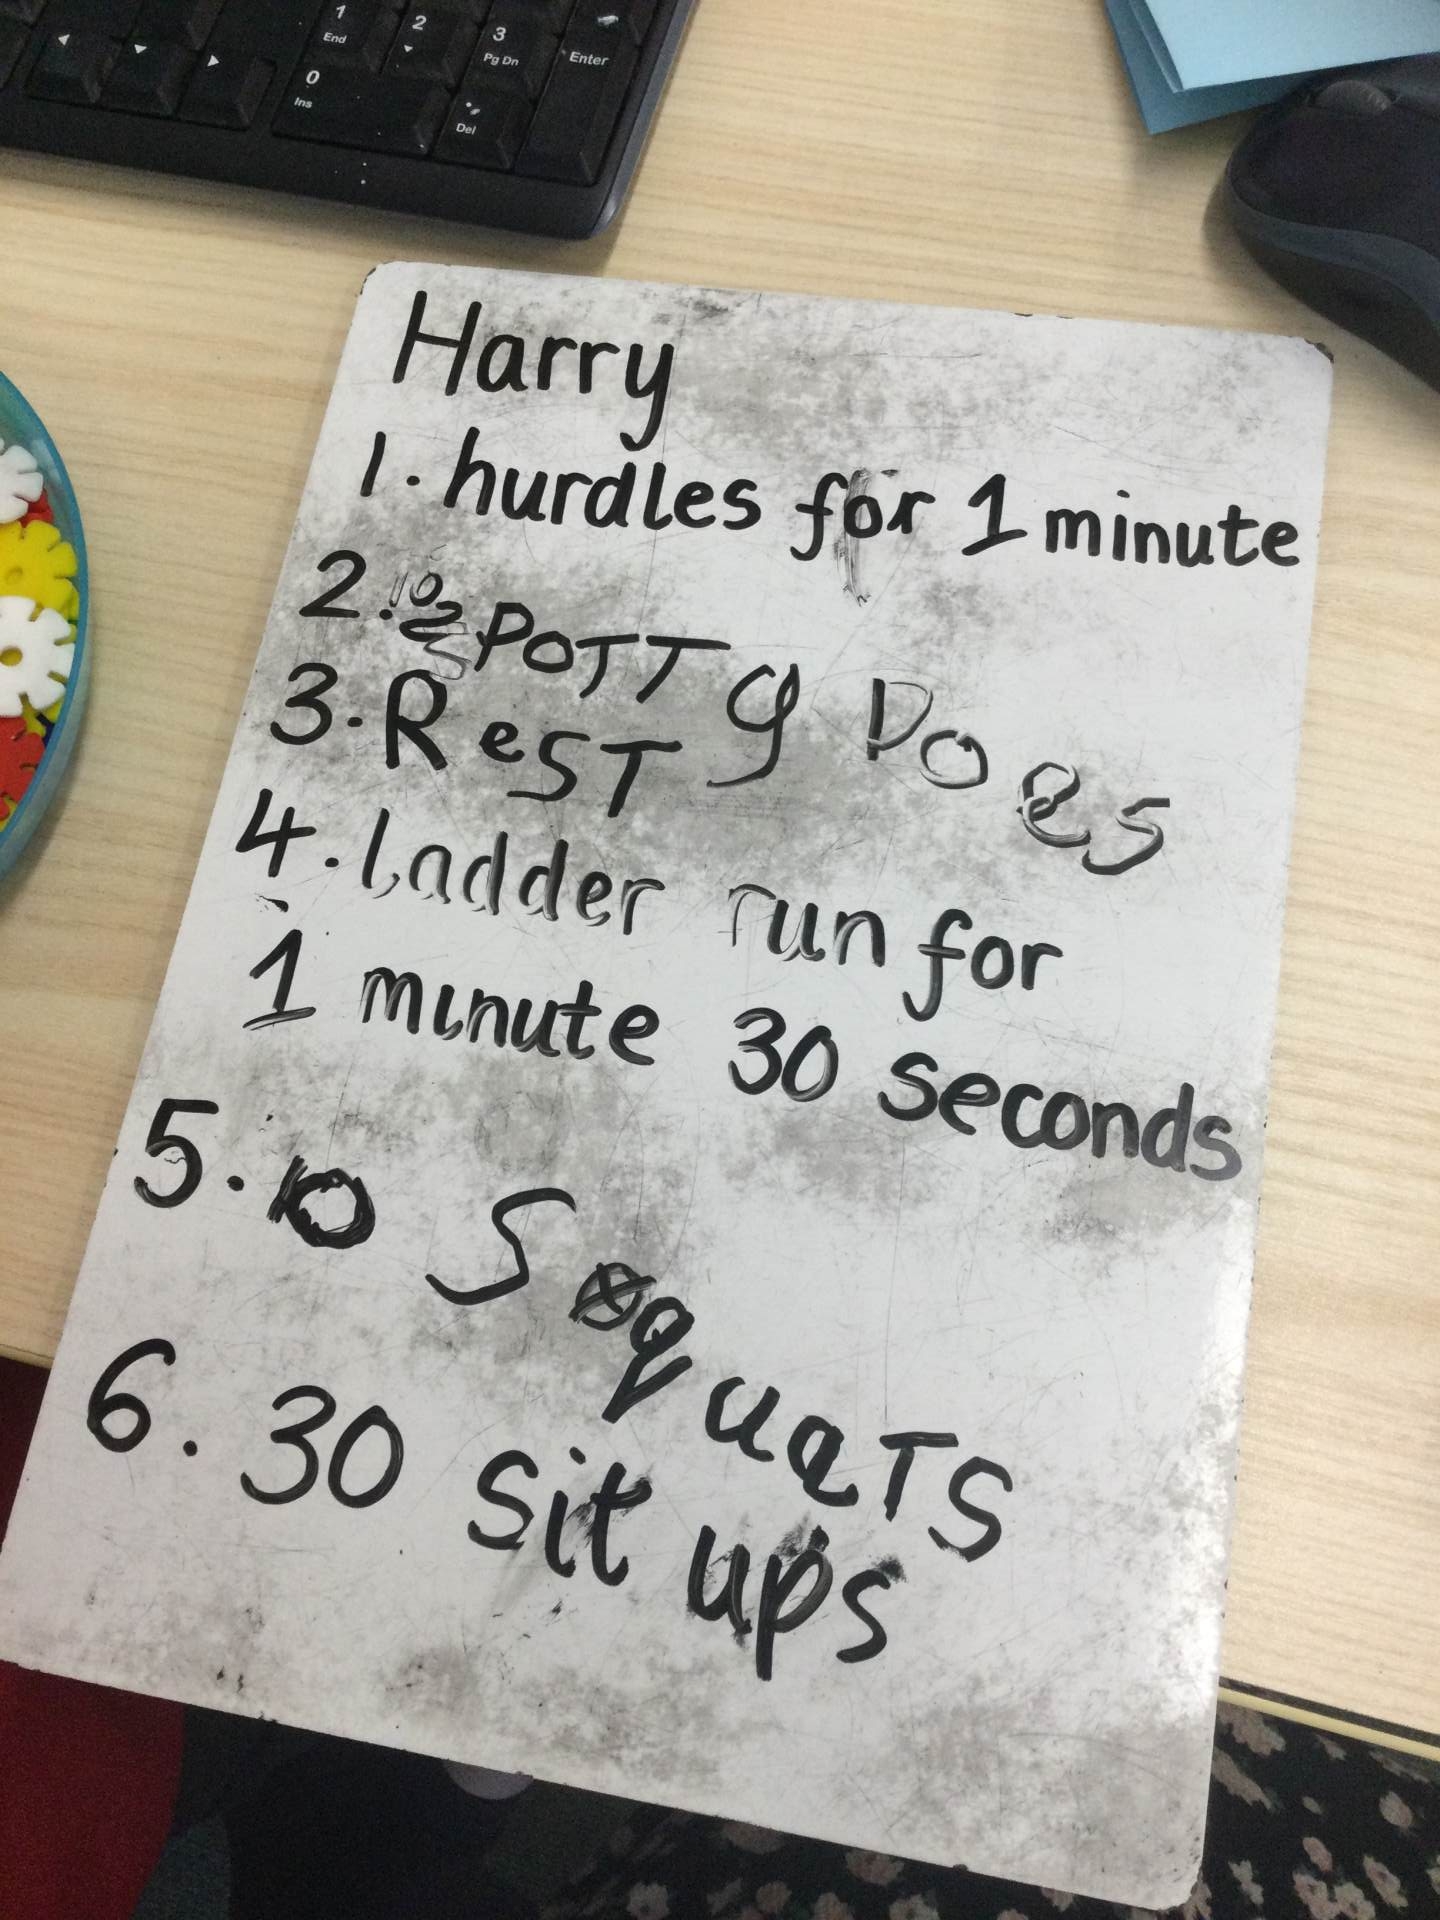 1 End
2
3 Pg Dn
Enter
0 Ins
. Del
Harry
1. hurdles for 1 minute
2. 10 POTTY DOeS
3. ReST
4. ladder run for
1 minute 30 seconds
5. 10 SquaTS
6. 30 sit ups